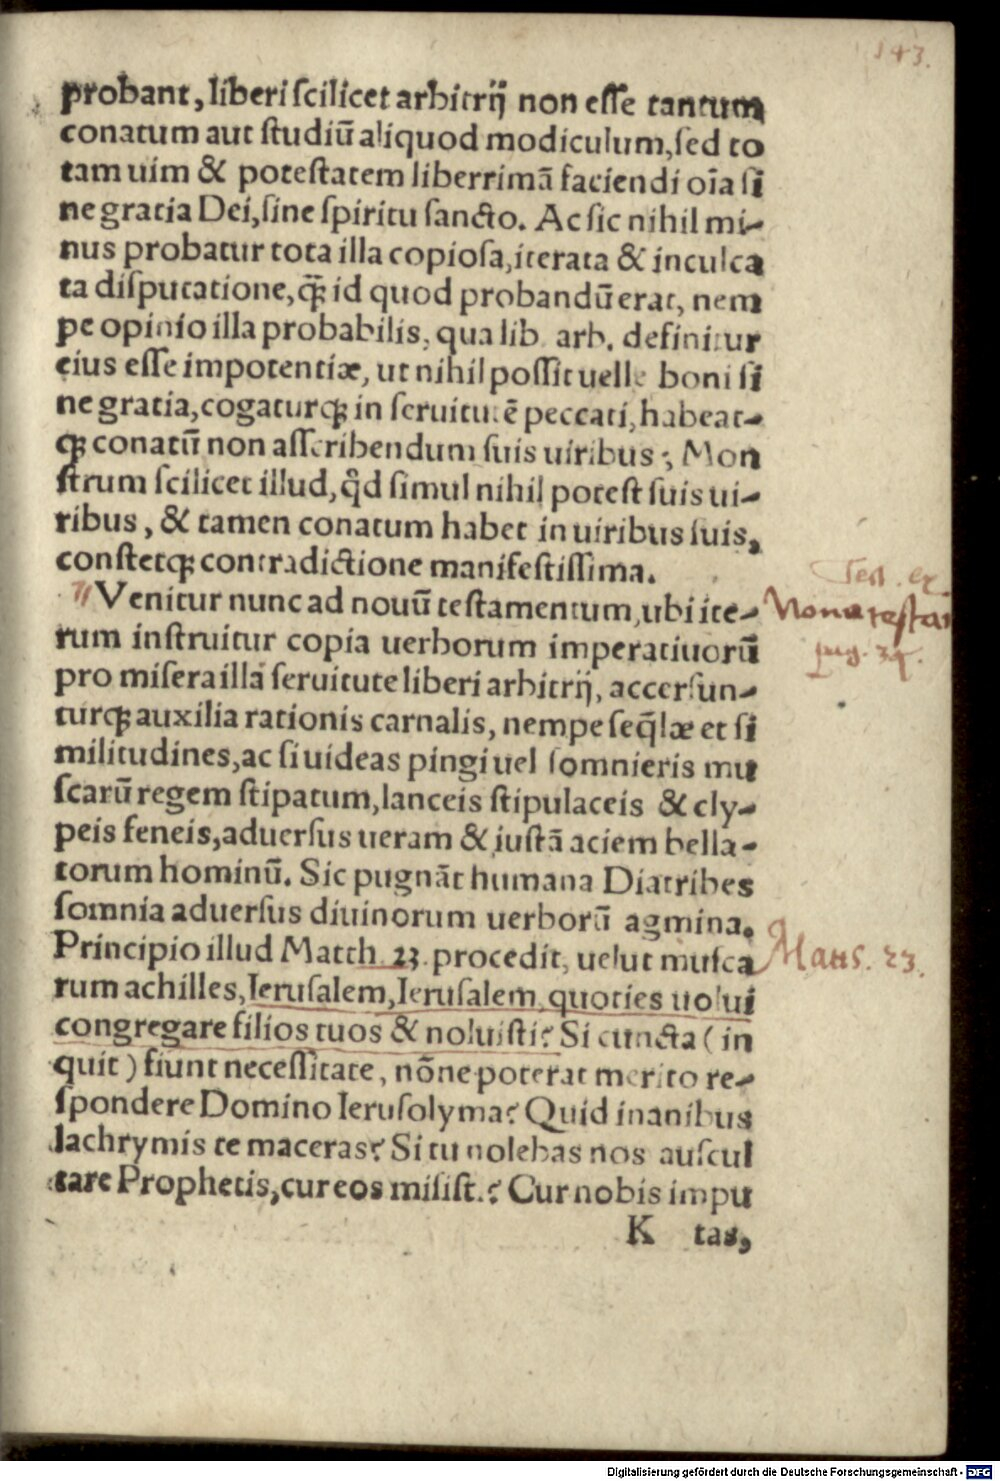 143.
probant, liberi scilicet arbitrij non esse tantum
conatum aut studiũ aliquod modiculum, sed to
tam uim & potestatem liberrimã faciendi oĩa si
ne gratia Dei, sine spiritu sancto. Ac sic nihil mi-
nus probatur tota illa copiosa, iterata & inculca
ta disputatione, q̃ꝫ id quod probandũ erat, nem
pe opinio illa probabilis, qua lib. arb. definitur
eius esse impotentiæ, ut nihil possit uelle boni si
ne gratia, cogaturqꝫ in seruitutẽ peccati, habeat-
qꝫ conatũ non asscribendum suis uiribus; Mon
strum scilicet illud, qd̃ simul nihil potest suis ui-
ribus, & tamen conatum habet in uiribus suis,
constetqꝫ contradictione manifestissima.
Venitur nunc ad nouũ testamentum, ubi ite-
rum instruitur copia uerborum imperatiuorũ
pro misera illa seruitute liberi arbitrij, accersun-
turqꝫ auxilia rationis carnalis, nempe seq̃læ et si
militudines, ac si uideas pingi uel somnieris mu
scarũ regem stipatum, lanceis stipulaceis & cly-
peis feneis, aduersus ueram & iustã aciem bella-
torum hominũ. Sic pugnãt humana Diatribes
somnia aduersus diuinorum uerborũ agmina.
Principio illud Matth. 23. procedit, uelut musca
Matt. 23.
rum achilles, Ierusalem, Ierusalem, quoties uolui
congregare filios tuos & noluisti? Si cuncta (in
quit) fiunt necessitate, nõne poterat merito re-
spondere Domino Ierusolyma? Quid inanibus
lachrymis te maceras? Si tu nolebas nos auscul
tare Prophetis, cur eos misist.? Cur nobis impu
K tas,
Digitalisierung gefördert durch die Deutsche Forschungsgemeinschaft - DFG